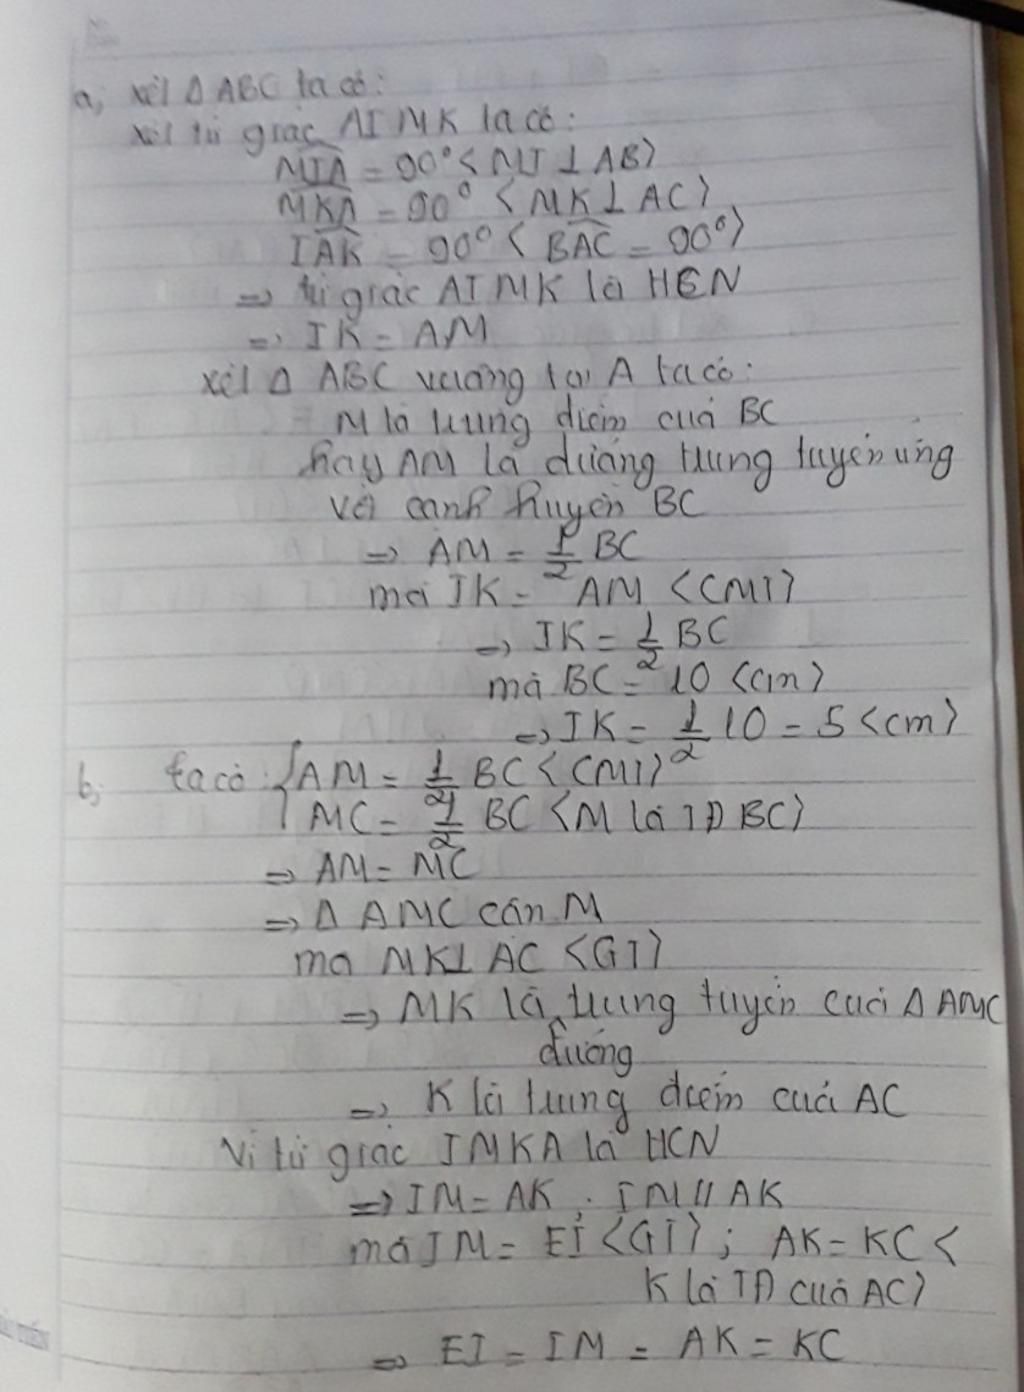 a, xét Δ ABC ta có:
xét tứ giác AIMK ta có:
MIA = 90° < MI ⊥ AB>
MKA = 90° < MK ⊥ AC>
IAK = 90° < BAC = 90°>
=> tứ giác AIMK là HCN
=> IK = AM
xét Δ ABC vuông tại A ta có:
M là trung điểm của BC
hay AM là đường trung tuyến ứng
với cạnh huyền BC
=> AM = 1/2 BC
mà IK = AM <CMT>
=> IK = 1/2 BC
mà BC = 10 <cm>
=> IK = 1/2 10 = 5 <cm>
b, ta có: { AM = 1/2 BC <CMT>
MC = 1/2 BC <M là TĐ BC>
=> AM = MC
=> Δ AMC cân M
mà MK ⊥ AC <GT>
=> MK là trung tuyến của Δ AMC
đường
=> K là trung điểm của AC
Vì tứ giác IMKA là HCN
=> IM = AK ; IM // AK
mà IM = EI <GT> ; AK = KC <
K là TĐ của AC>
=> EI = IM = AK = KC